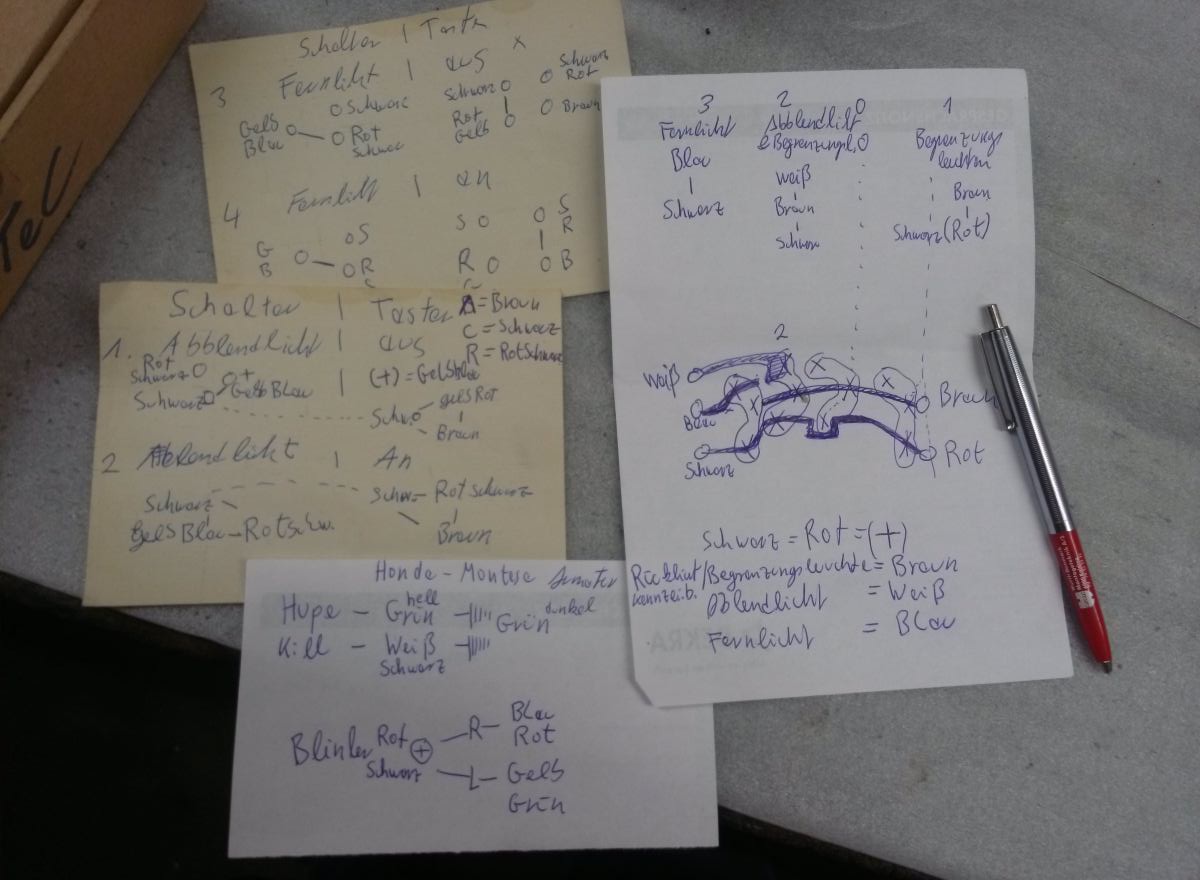 Schalter | Taster
3 Fernlicht | aus x
Schwarz Schwarz Schwarz Rot
Gelb Blau Rot Schwarz Rot Gelb Braun
4 Fernlicht | an
S S S R
G B R R B
Schalter | Taster
= Braun
C = Schwarz
R = RotSchwarz
1. Abblendlicht | aus
Rot Schwarz + (+) = Gelbblau
Schwarz Gelb Blau
Schw gelbRot
Braun
2 Abblendlicht | An
Schwarz Schwar Rot Schwarz
Gelb Blau - Rotschw. Braun
Honda-Montesa
Hupe - Grün hell Grün dunkel
Kill - Weiß Schwarz
Blinker Rot Schwarz + R - Blau Rot
L - Gelb Grün
3 2 0 1
Fernlicht Abblendlicht Begrenzungs
&Begrenzungsl. 0 leuchten
Blau weiß Braun
Schwarz Braun Schwarz (Rot)
Schwarz
2
Weiß
Blau Braun
Schwarz Rot
Schwarz = Rot = (+)
Rücklicht/Begrenzungsleuchte = Braun
Kennzeib.
Abblendlicht = Weiß
Fernlicht = Blau